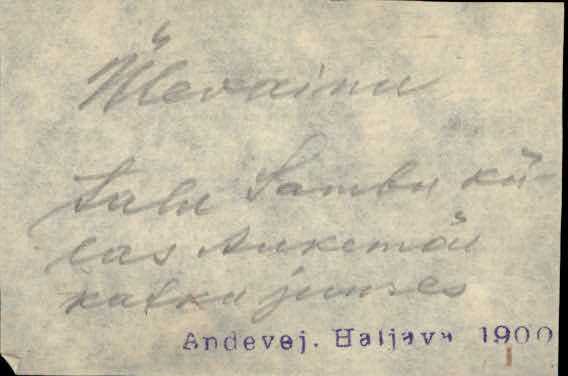 Ülevainu
talu Sambu kü-
las Aukemäe
katku juures
Andevej. Haljava 1900
1